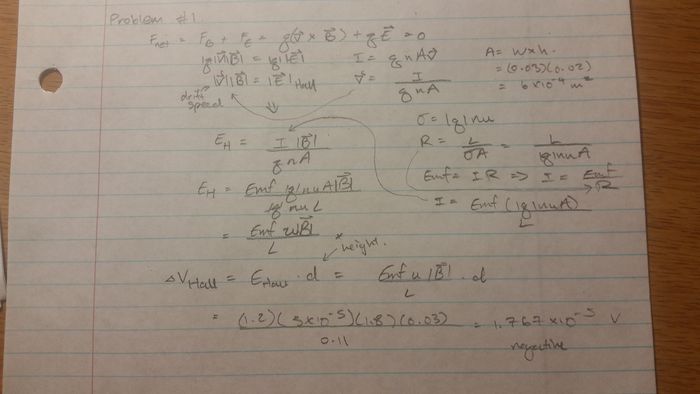 Problem #1
F_net = F_B + F_E = q(v⃗ × B⃗) + qE⃗ = 0
|q||v⃗||B⃗| = |q||E⃗|
I = qnAv⃗
A = w×h.
|v⃗||B⃗| = |E⃗|Hall
v⃗ = I / qnA
= (0.03)(0.02)
= 6×10⁻⁴ m²
drift speed
⇓
σ = |q|nu
E_H = I|B⃗| / qnA
R = L / σA = L / |q|nuA
E_H = Emf |q|nuA|B⃗| / |q|nuL
Emf = IR ⇒ I = Emf / R
I = Emf(|q|nuA) / L
= Emf u|B⃗| / L
* height.
ΔV_Hall = E_Hall · d = Emf u|B⃗| / L · d
= (1.2)(3×10⁻⁵)(1.8)(0.03) / 0.11 = 1.767×10⁻⁵ V
negative